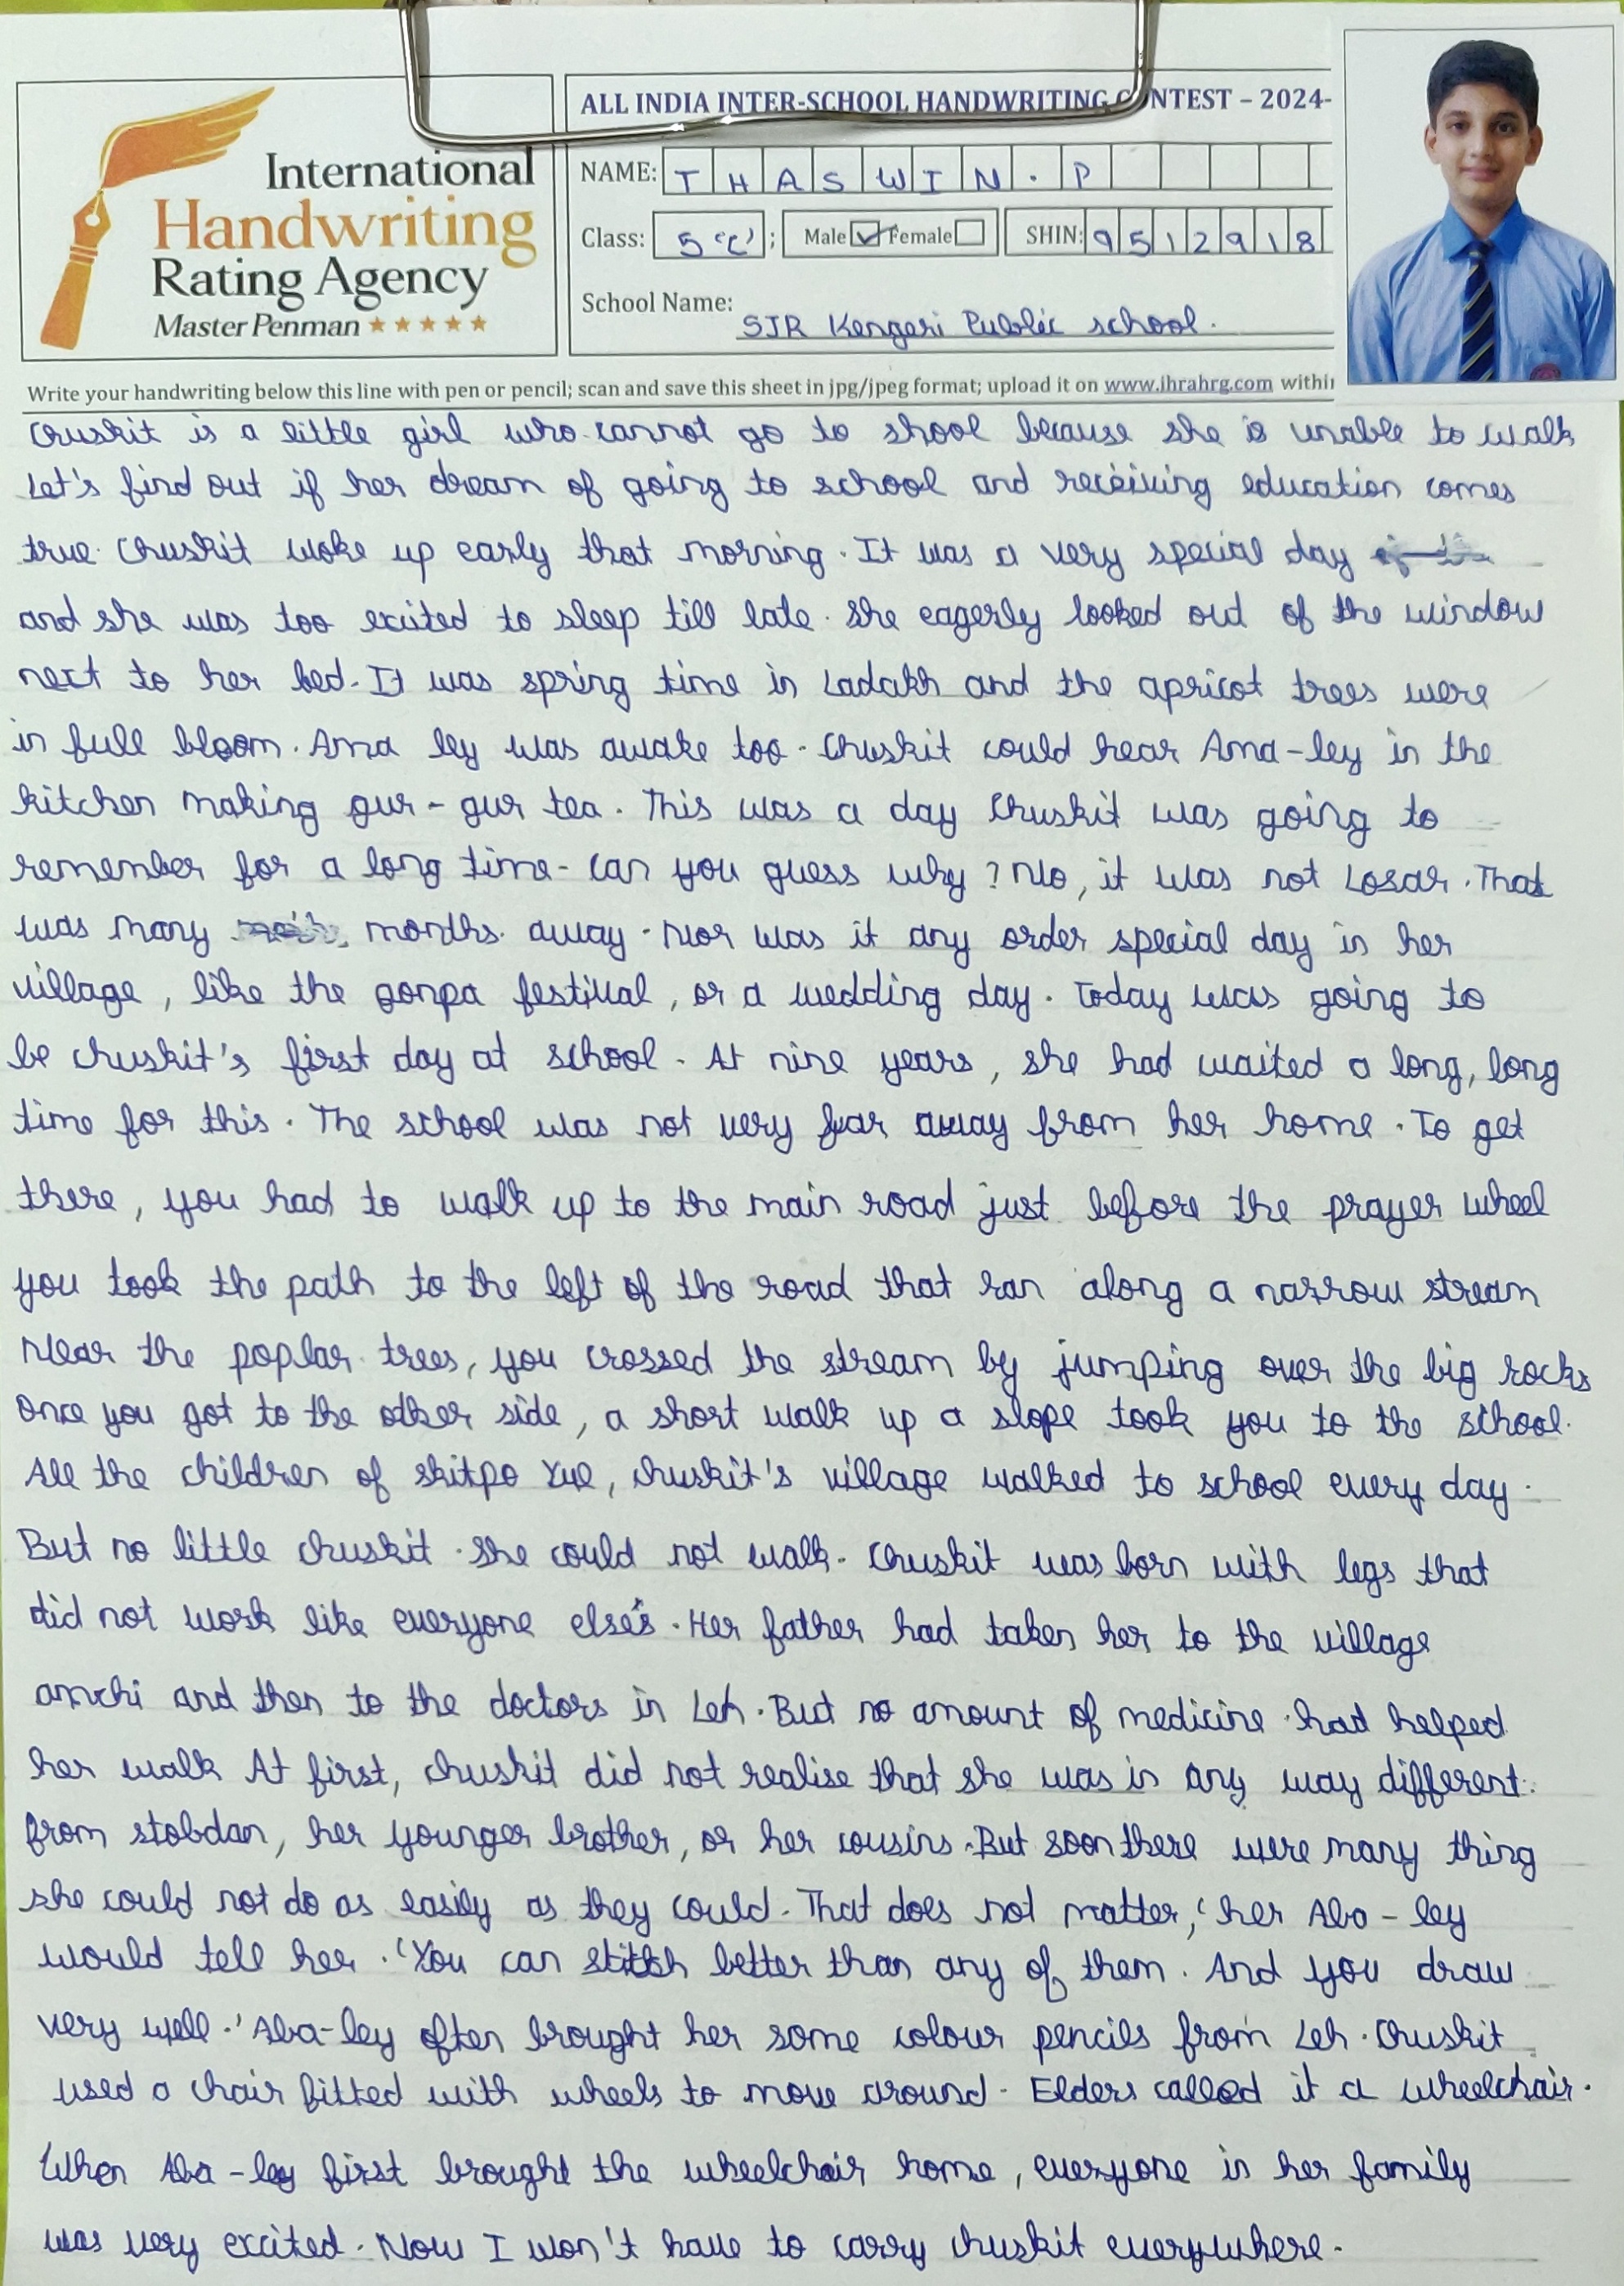 ALL INDIA INTER-SCHOOL HANDWRITING CONTEST – 2024-
International
Handwriting
Rating Agency
Master Penman
NAME: THASWIN.P
Class: 5 "C" ; Male Female SHIN: 9512918
School Name: SJR Kengeri Public school.
Write your handwriting below this line with pen or pencil; scan and save this sheet in jpg/jpeg format; upload it on www.ihrahrg.com withi
Chuskit is a little girl who cannot go to shool because she is unable to walk
Let's find out if her dream of going to school and receiving education comes
true. Chuskit woke up early that morning. It was a very special day
and she was too excited to sleep till late. She eagerly looked out of the window
next to her bed. It was spring time in Ladakh and the apricot trees were
in full bloom. Ama ley was awake too. Chuskit could hear Ama-ley in the
kitchen making gur-gur tea. This was a day Chuskit was going to
remember for a long time- Can you guess why? No, it was not Losar. That
was many months. away. Nor was it any order special day in her
village, like the gonpa festival, or a wedding day. Today was going to
be chuskit's first day at school. At nine years, she had waited a long, long
time for this. The school was not very far away from her home. To get
there, you had to walk up to the main road just before the prayer wheel
you took the path to the left of the road that ran along a narrow stream
Near the poplar trees, you crossed the stream by jumping over the big rocks
Once you got to the other side, a short walk up a slope took you to the school.
All the children of skitpo Yul, chuskit's village walked to school every day.
But no little chuskit. She could not walk. Chuskit was born with legs that
did not work like everyone else's. Her father had taken her to the village
amchi and then to the doctors in Leh. But no amount of medicine had helped
her walk At first, chuskit did not realise that she was in any way different.
from stobdan, her younger brother, or her cousins. But soon there were many thing
she could not do as easily as they could. That does not matter,' her Aba-ley
would tell her. 'You can stitch better than any of them. And you draw
very well.' Aba-ley often brought her some colour pencils from Leh. Chuskit
used a chair fitted with wheels to move around. Elders called it a wheelchair.
When Aba-ley first brought the wheelchair home, everyone in her family
was very excited. Now I won't have to carry chuskit everywhere.